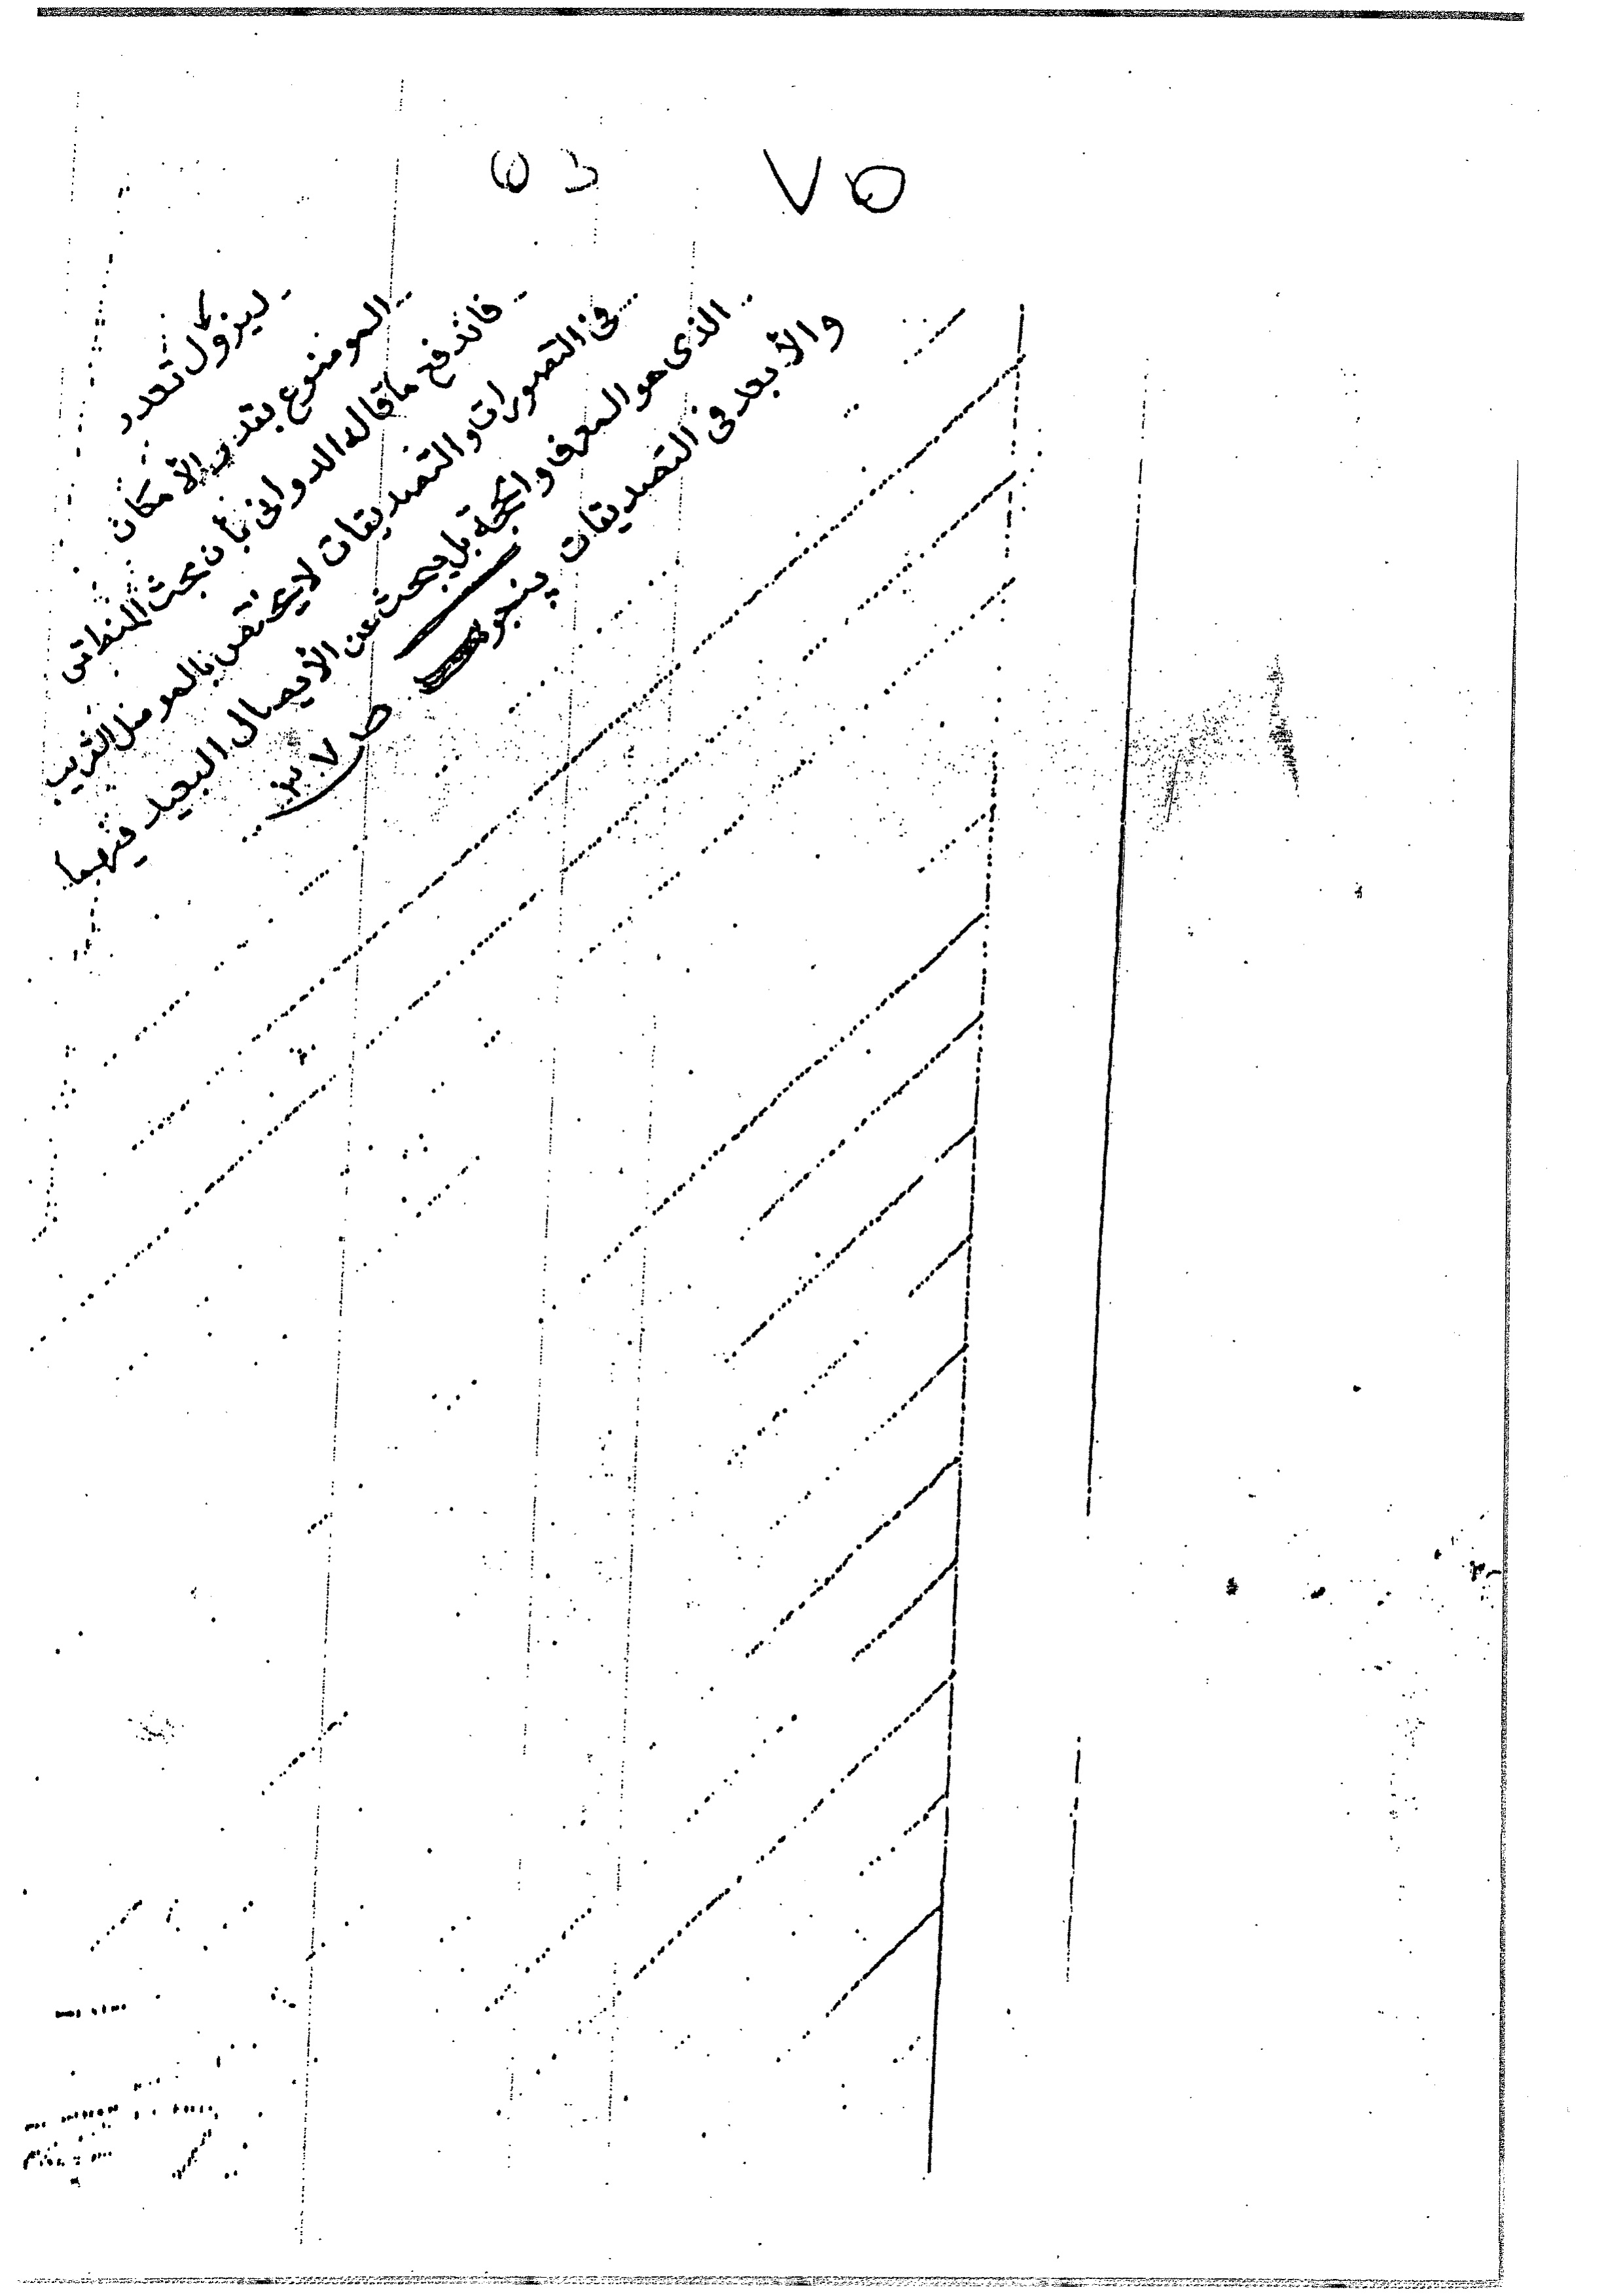 ٥٣ ٧٥
ليزول تعدد
الموضوع بقدر الأمكان
فاندفع ما قاله الدوانى بأن بحث المنطقى
فى التصورات و التصديقات لا يختص بالموصل القريب
الذى هو المعرف و الحجة بل يبحث عن الأيصال البعيد فيهما
و الأبعد فى التصديقات پنجوى ص ٣٠٧